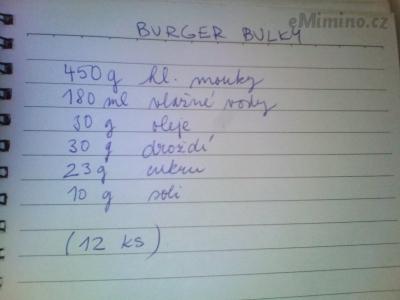 eMimino.cz
BURGER BULKY
450 g hl. mouky
180 ml vlažné vody
30 g oleje
30 g droždí
23 g cukru
10 g soli
(12 ks)